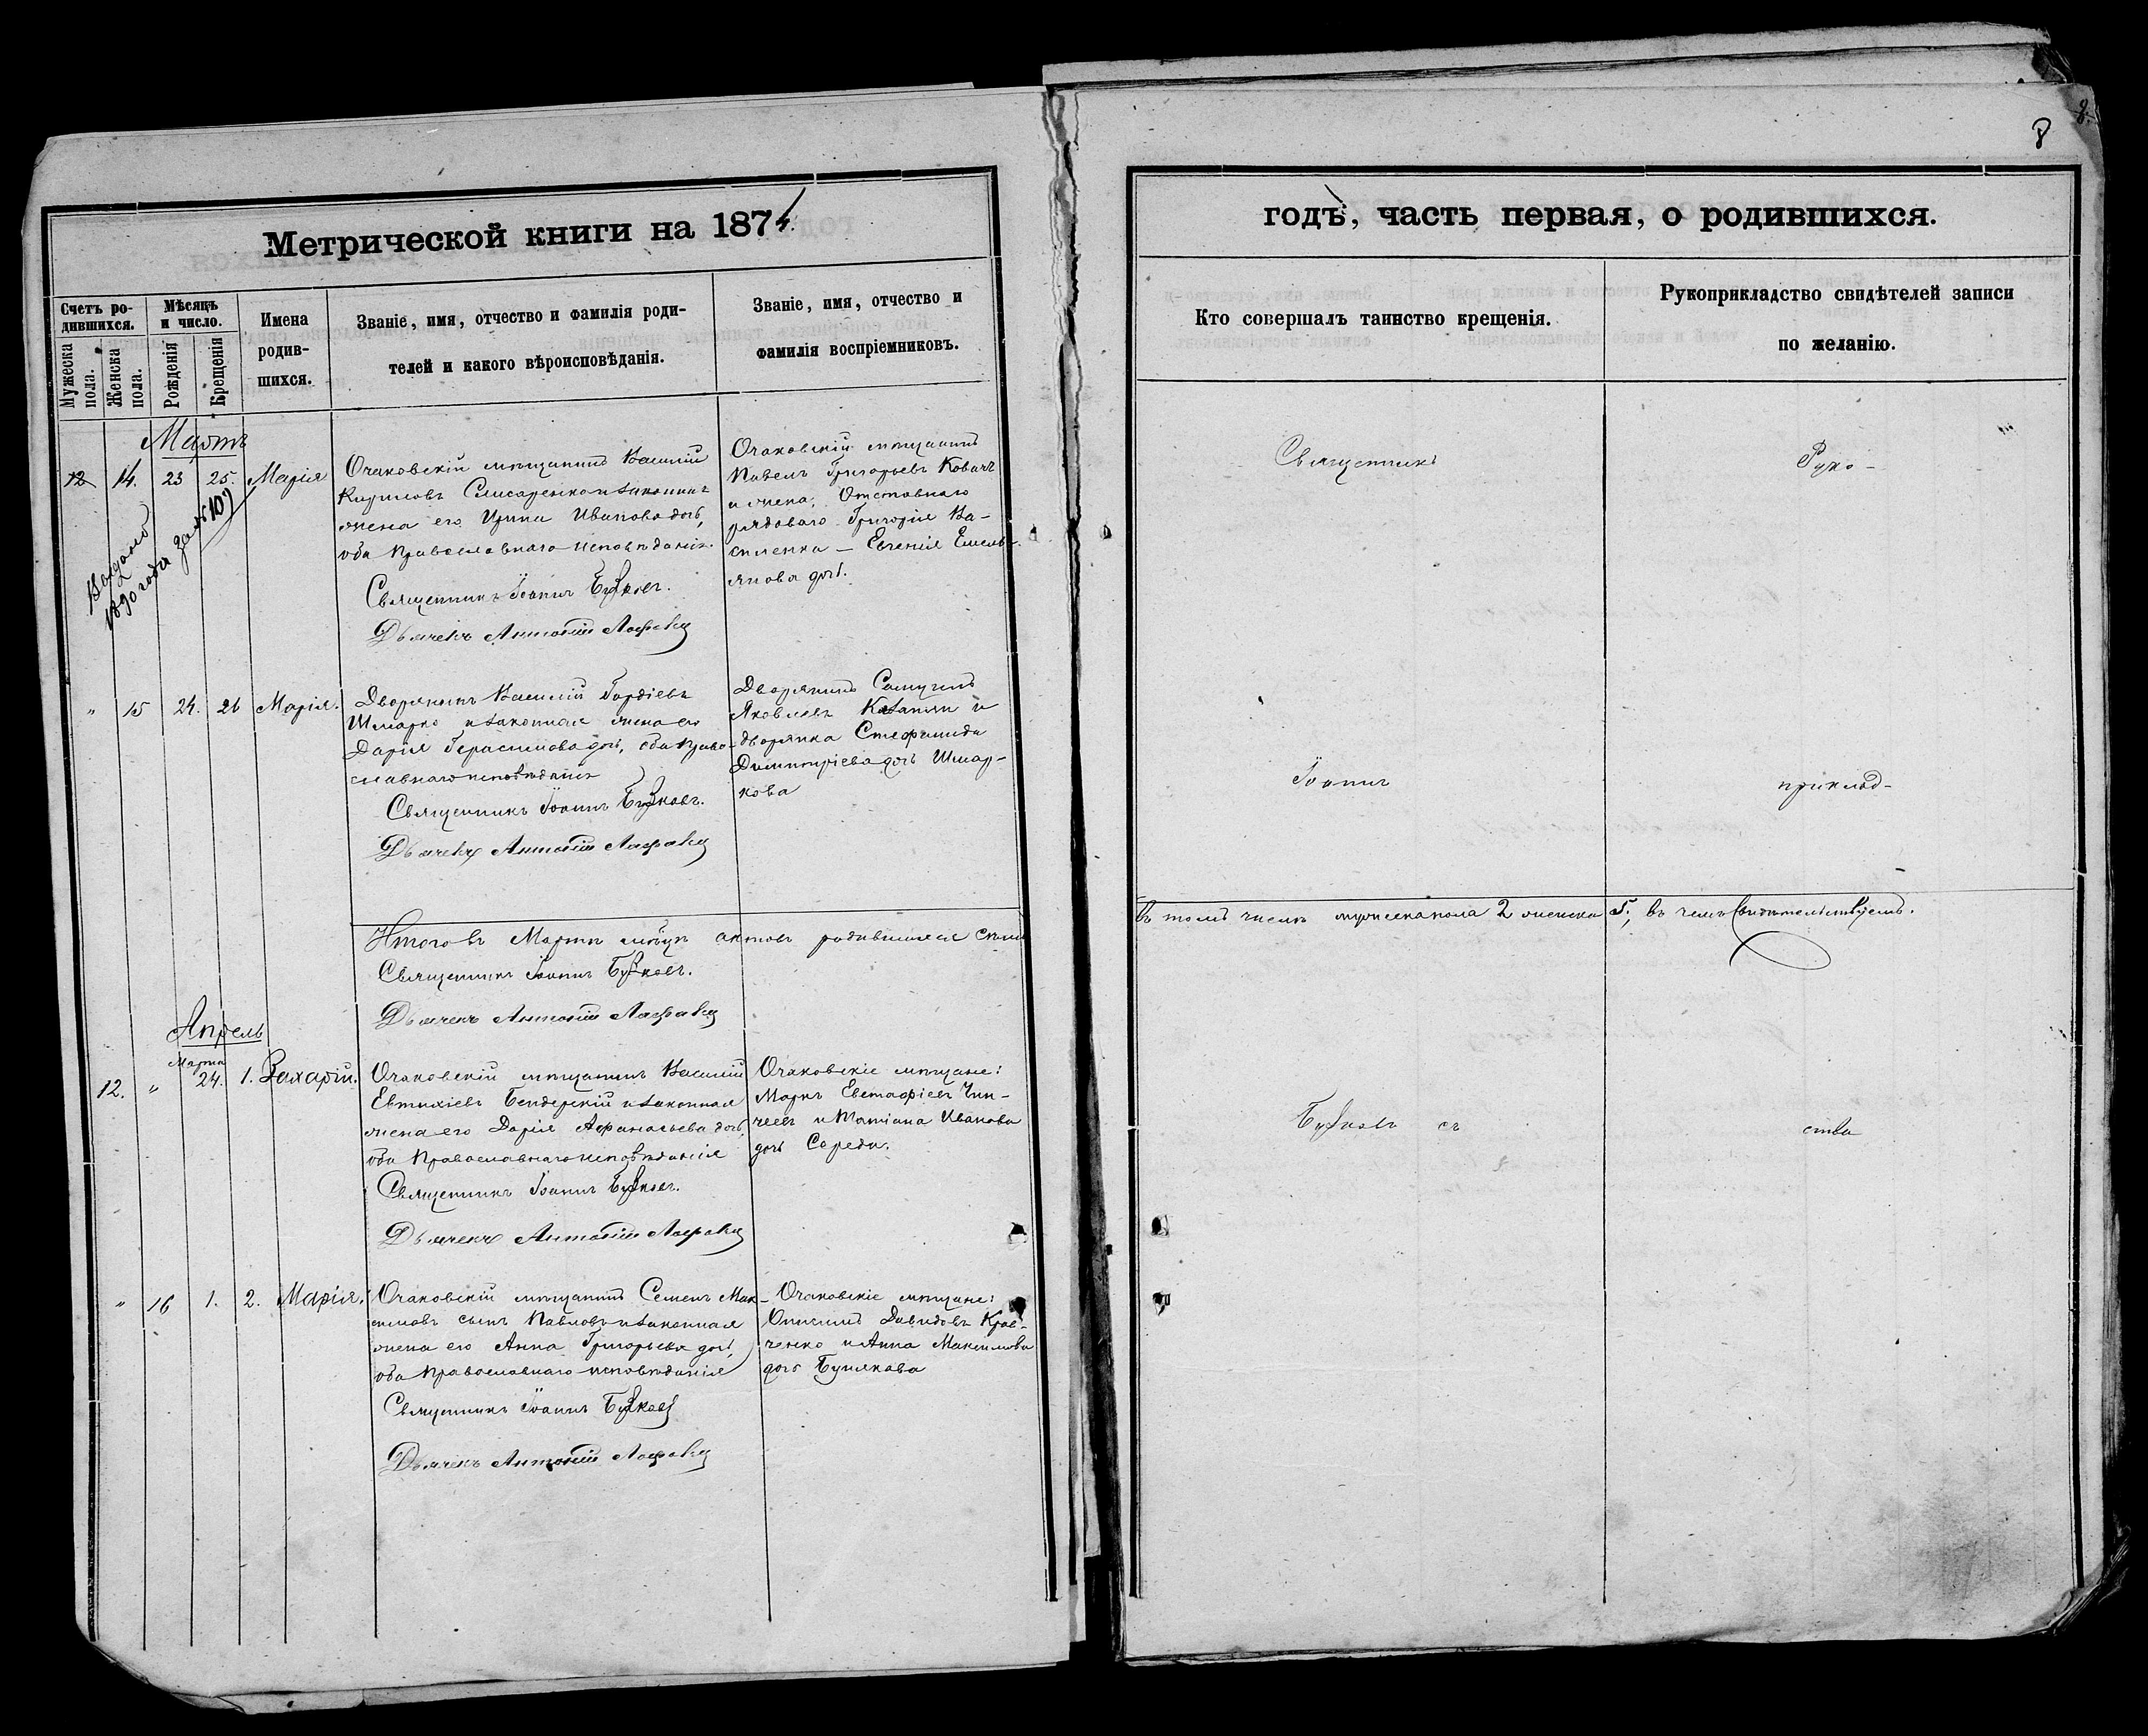 8
Метрической книги на 1874.
годъ, часть первая, о родившихся.
Счетъ ро-
дившихся.
Мѣсяцъ
и число.
Мужеска
пола.
Женска
пола.
Рожденія
Крещенія
Имена
родив-
шихся.
Званіе, имя, отчество и фамилія роди-
телей и какого вѣроисповѣданія.
Званіе, имя, отчество и
фамилія воспріемниковъ.
Кто совершалъ таинство крещенія.
Рукоприкладство свидѣтелей записи
по желанію.
Мартъ
12 14. 23 25. Марія
Выдано
1890 года за №107
Очаковскій мѣщанинъ Василій
Кириловъ Слисаренко и законная
жена его Ирина Иванова дочь,
оба православнаго исповѣданія.
Священникъ Іоаннъ
Дьячекъ Антоній
Очаковскій мѣщанинъ
Павелъ Григорьевъ Ковачъ
и жена, Отставнаго
рядоваго Григорія Ва-
силенка — Евгенія Емель-
янова дочь.
" 15 24. 26 Марія.
Дворянинъ Василій Гордіевъ
Шмарко и законная жена его
Дарія Герасимова дочь, оба право-
славнаго исповѣданія
Священникъ Іоаннъ
Дьячекъ Антоній
Дворянинъ
Яковлевъ и
дворянка Стефанида
Димитріева дочь Шмар-
кова
Итого въ Мартѣ мѣсяцѣ актовъ родившихся семь
Священникъ Іоаннъ
Дьячекъ Антоній
въ томъ числѣ мужеска пола 2 женска 5, въ чемъ свидѣтельствуемъ.
Апрель
Марта
12. " 24. 1. Захарій.
Очаковскій мѣщанинъ Василій
Евтихіевъ Бендерскій и законная
жена его Дарія Афанасьева дочь,
оба Православнаго исповѣданія
Священникъ Іоаннъ
Дьячекъ Антоній
Очаковскіе мѣщане:
Маркъ Евстафіевъ Чин-
чеевъ и Татіана Иванова
дочь Середа.
" 16 1. 2. Марія.
Очаковскій мѣщанинъ Семенъ Мак-
симовъ сынъ Павловъ и законная
жена его Анна Григорьева дочь,
оба Православнаго исповѣданія
Священникъ Іоаннъ
Дьячекъ Антоній
Очаковскіе мѣщане:
Онисимъ Давидовъ Крав-
ченко и Анна Максимова
дочь Бушкова
Священникъ
Іоаннъ
съ
Руко-
приклад-
ства